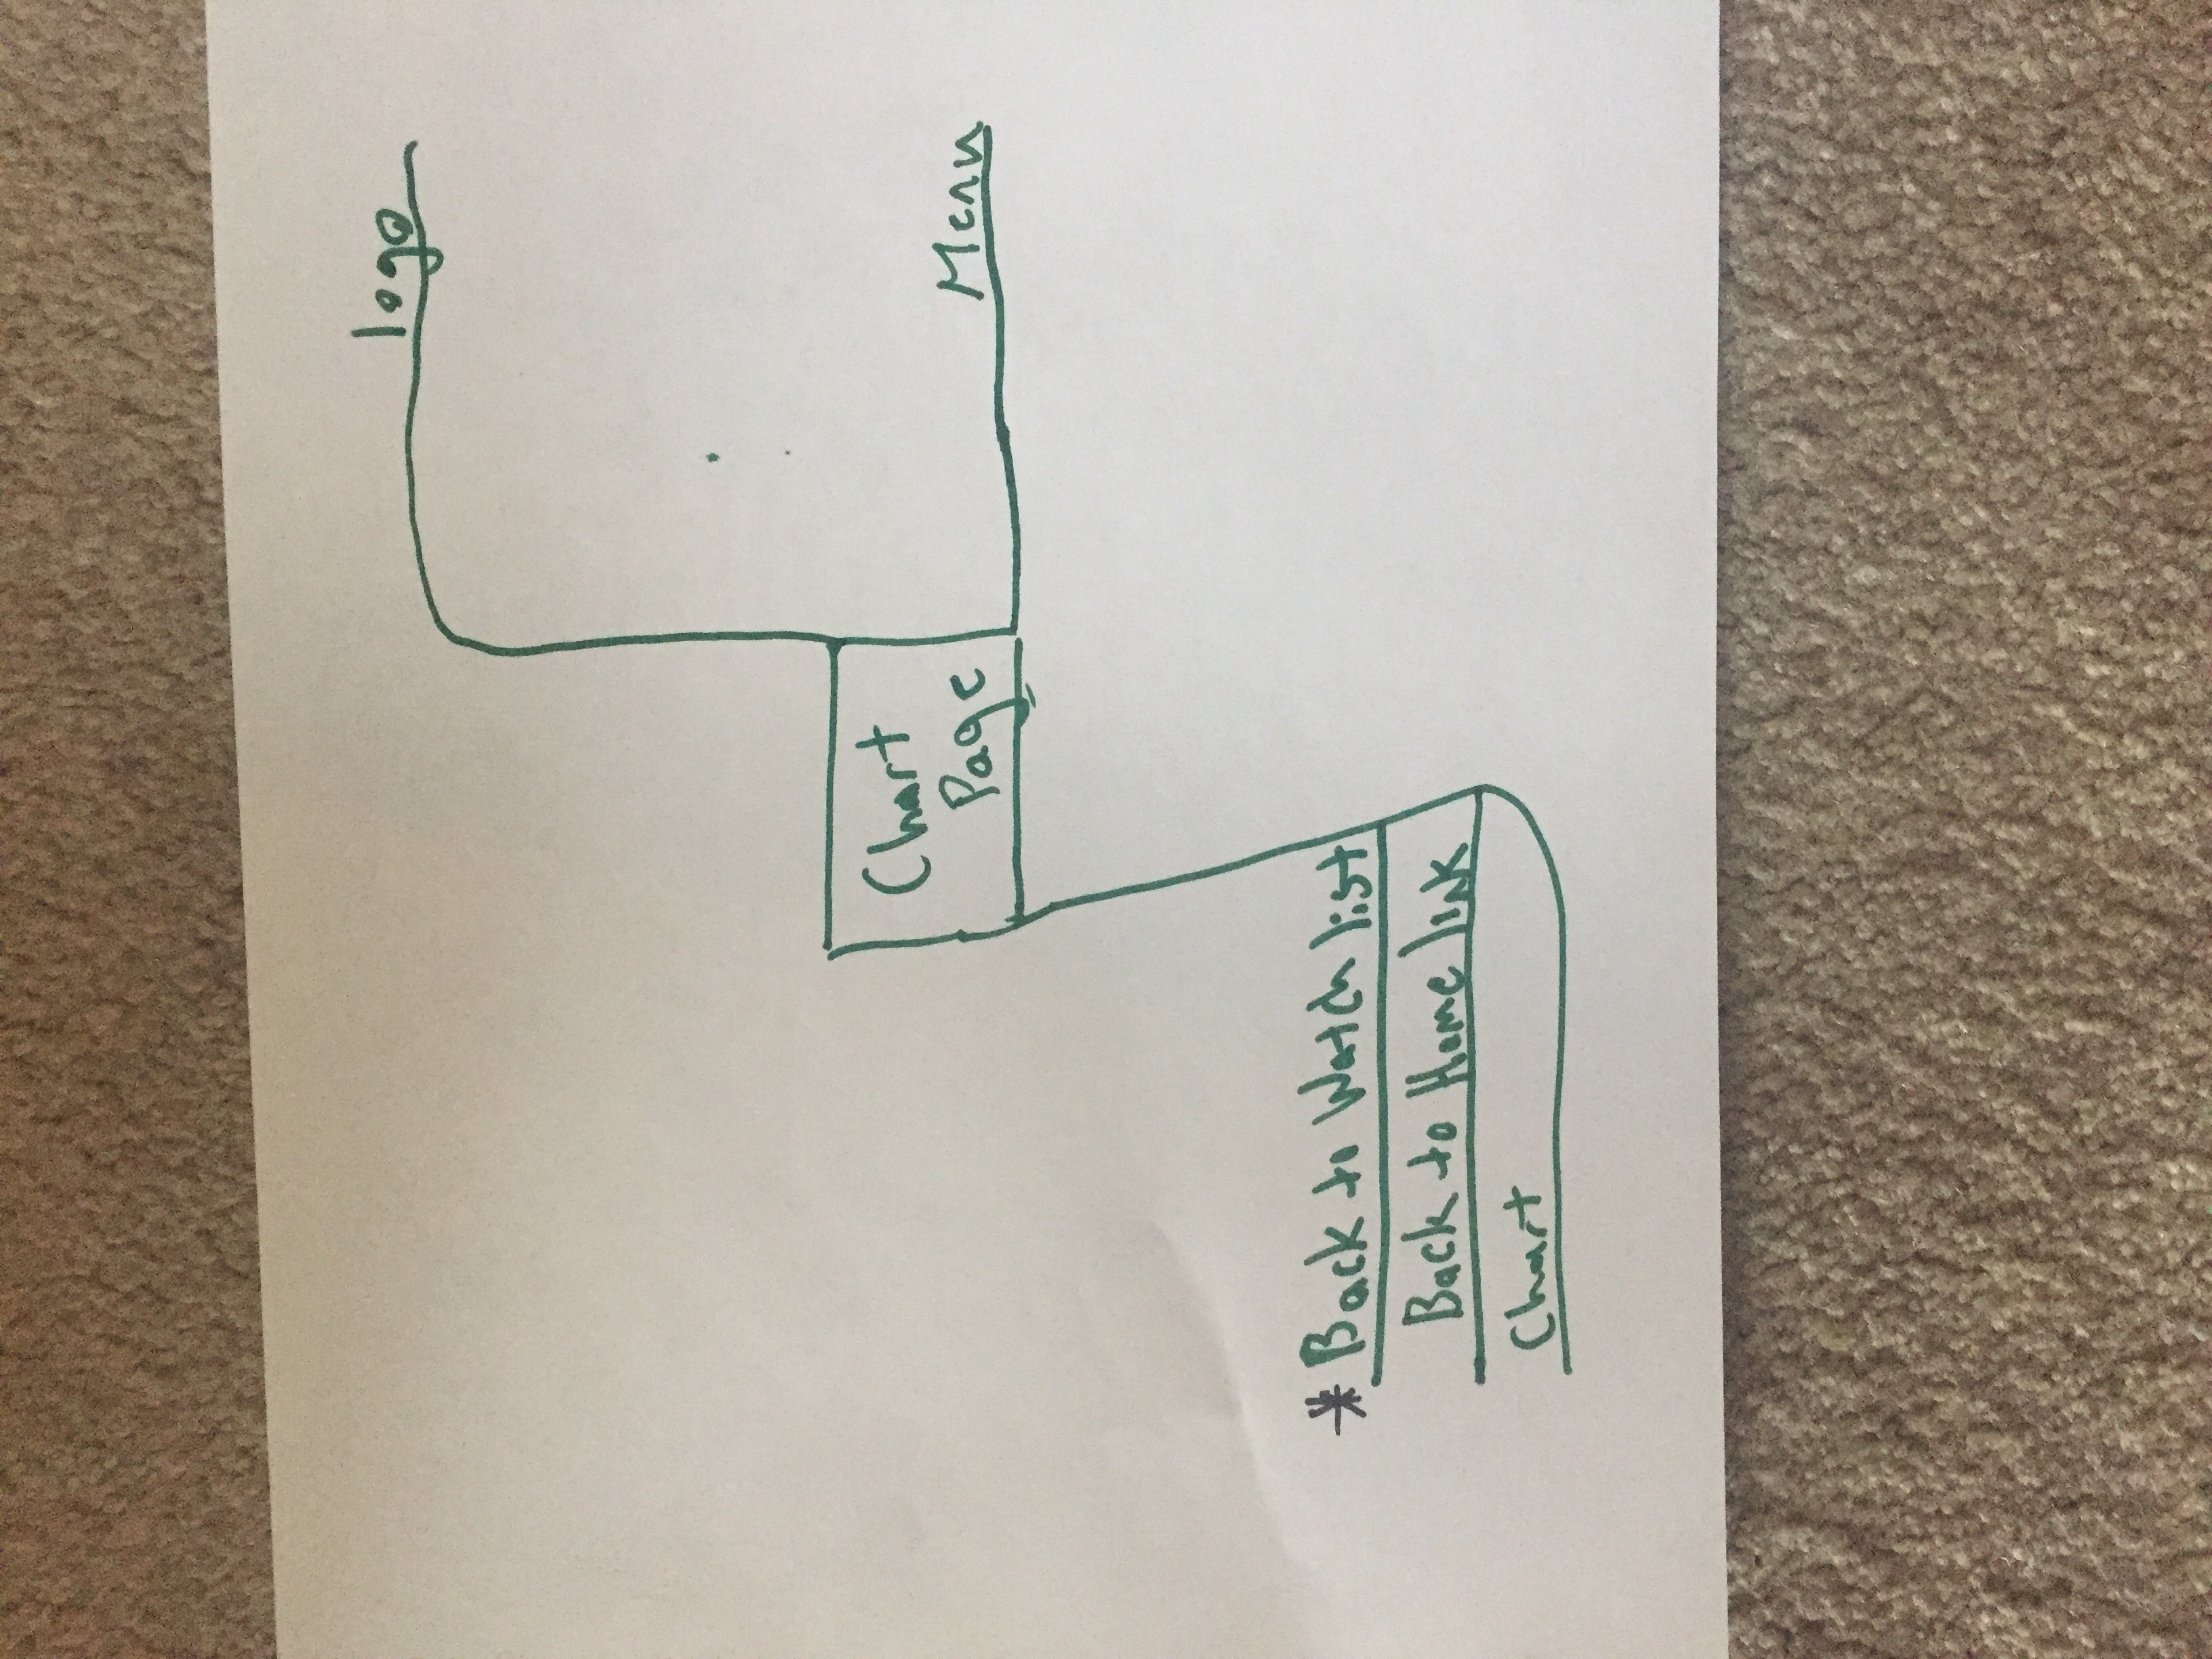 logo
Chart
Page
Menu
* Back to Watch list
Back to Home link
Chart